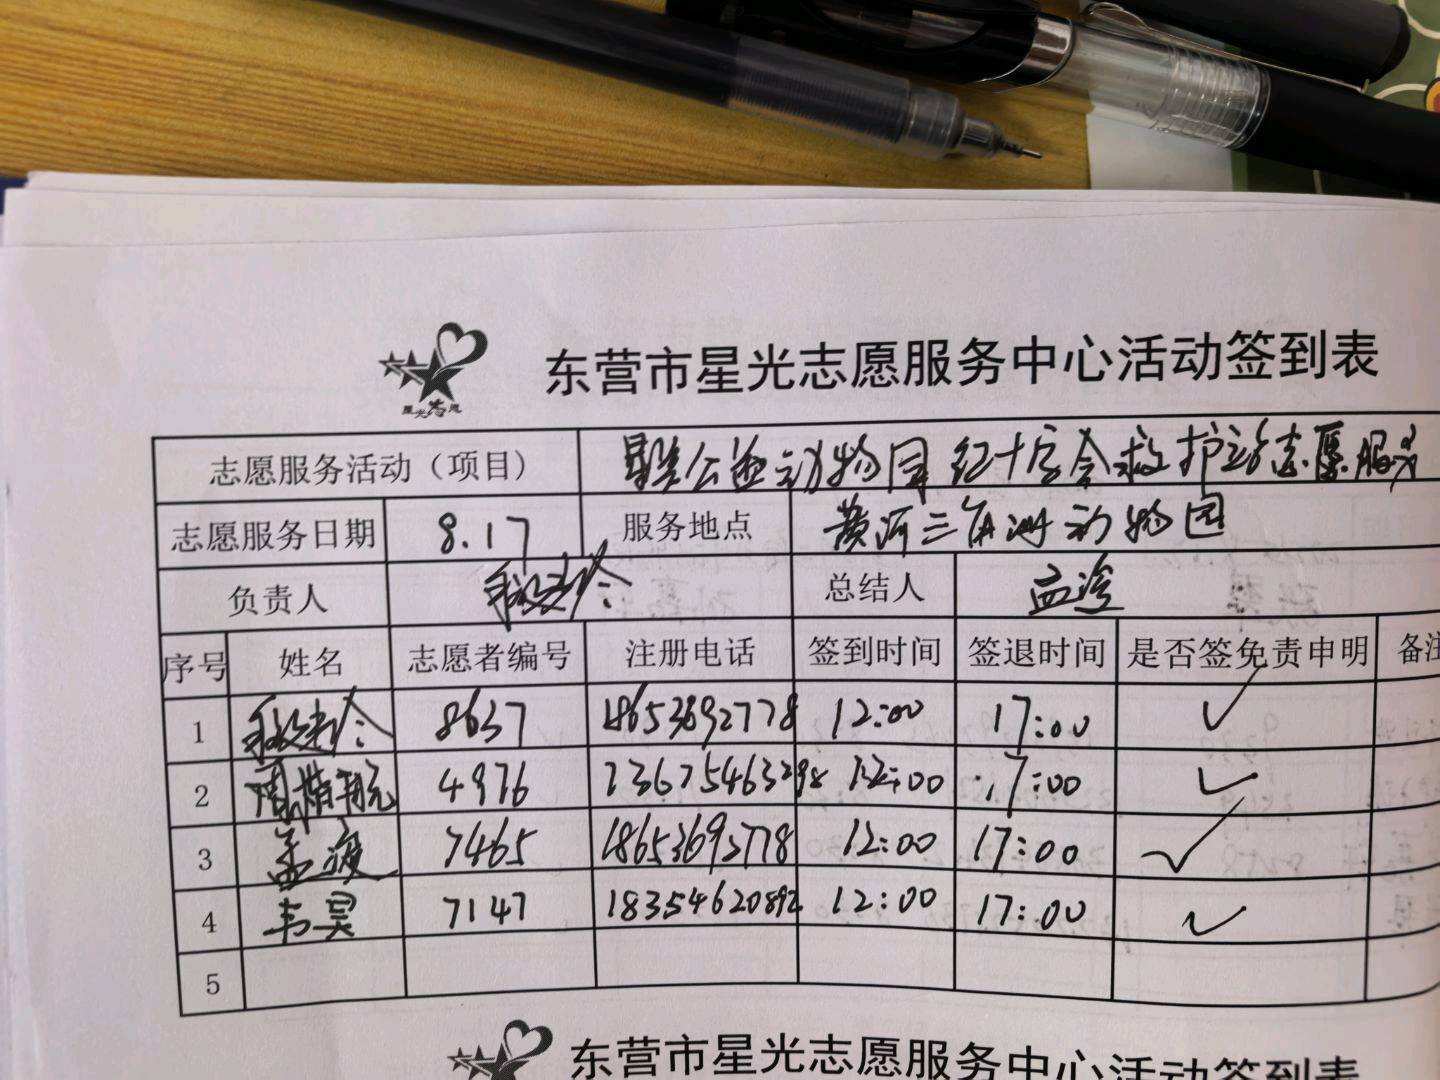 星光志愿
东营市星光志愿服务中心活动签到表
志愿服务活动（项目） 公益动物园红十字会救护站志愿服务
志愿服务日期 8.17 服务地点 黄河三角洲动物园
负责人 总结人 孟
序号 姓名 志愿者编号 注册电话 签到时间 签退时间 是否签免责申明 备注
1 8637 18653692778 12:00 17:00 ✓
2 周 航 4976 13675463298 12:00 17:00 ✓
3 孟 7465 18653692778 12:00 17:00 ✓
4 韦昊 7147 18354620892 12:00 17:00 ✓
5
东营市星光志愿服务中心活动签到表